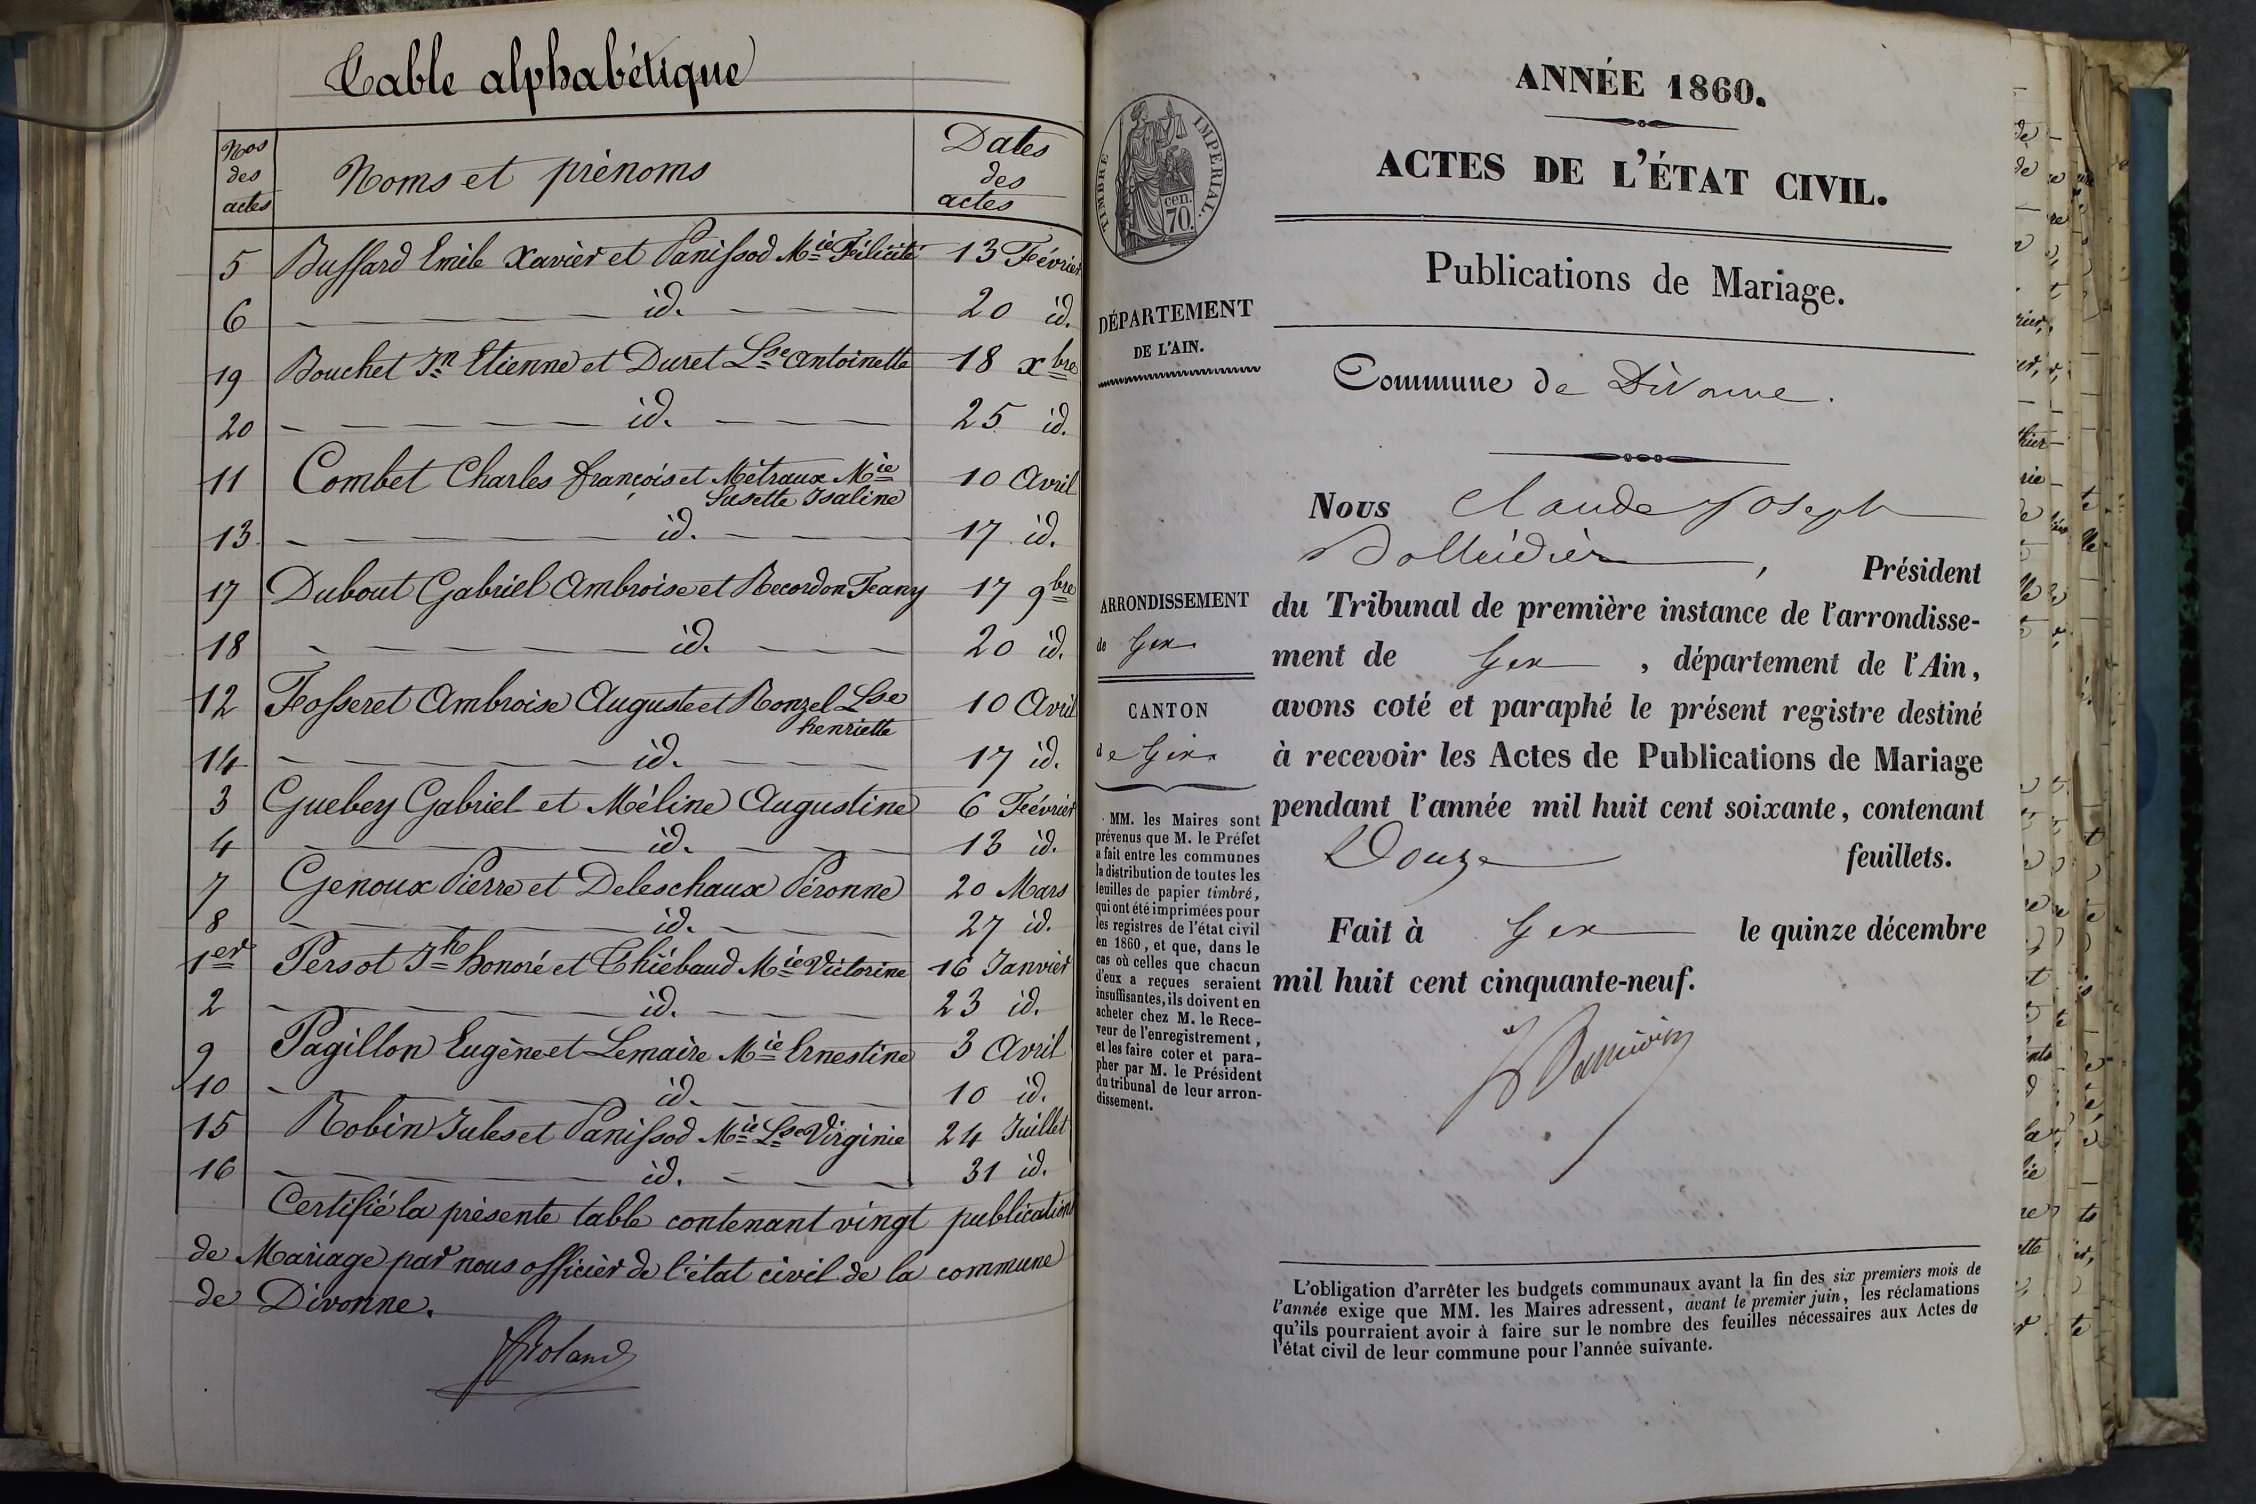 Table alphabétique
Nos des actes
Noms et prénoms
Dates des actes
5 Bussard Emile Xavier et Panissod Mie Félicité 13 Février
6 id. 20 id.
19 Bouchet Jn Etienne et Duret Lse Antoinette 18 xbre
20 id. 25 id.
11 Combet Charles françois et Métraux Mie 10 Avril
Susette Isaline
13 id. 17 id.
17 Dubout Gabriel Ambroise et Recordon Jeany 17 9bre
18 id. 20 id.
12 Fosseret Ambroise Auguste et Ronzel Lse 10 Avril
henriette
14 id. 17 id.
3 Guebey Gabriel et Méline Augustine 6 Février
4 id. 13 id.
7 Genoux Pierre et Deleschaux Péronne 20 Mars
8 id. 27 id.
1er Persot Jh honoré et Thiébaud Mie Victorine 16 Janvier
2 id. 23 id.
9 Pagillon Eugène et Lemaire Mie Ernestine 3 Avril
10 id. 10 id.
15 Robin Jules et Panissod Mie Lse Virginie 24 Juillet
16 id. 31 id.
Certifié la présente table contenant vingt publications
de Mariage par nous officier de l'état civil de la commune
de Divonne.
Roland
TIMBRE IMPERIAL.
cen.
70.
DÉPARTEMENT
DE L'AIN.
ARRONDISSEMENT
de Gex
CANTON
de Gex
MM. les Maires sont
prévenus que M. le Préfet
a fait entre les communes
la distribution de toutes les
feuilles de papier timbré,
qui ont été imprimées pour
les registres de l'état civil
en 1860, et que, dans le
cas où celles que chacun
d'eux a reçues seraient
insuffisantes, ils doivent en
acheter chez M. le Rece-
veur de l'enregistrement,
et les faire coter et para-
pher par M. le Président
du tribunal de leur arron-
dissement.
ANNÉE 1860.
ACTES DE L'ÉTAT CIVIL.
Publications de Mariage.
Commune de Divonne.
Nous Claude Joseph
, Président
du Tribunal de première instance de l'arrondisse-
ment de Gex, département de l'Ain,
avons coté et paraphé le présent registre destiné
à recevoir les Actes de Publications de Mariage
pendant l'année mil huit cent soixante, contenant
Douze feuillets.
Fait à Gex le quinze décembre
mil huit cent cinquante-neuf.
L'obligation d'arrêter les budgets communaux avant la fin des six premiers mois de
l'année exige que MM. les Maires adressent, avant le premier juin, les réclamations
qu'ils pourraient avoir à faire sur le nombre des feuilles nécessaires aux Actes de
l'état civil de leur commune pour l'année suivante.